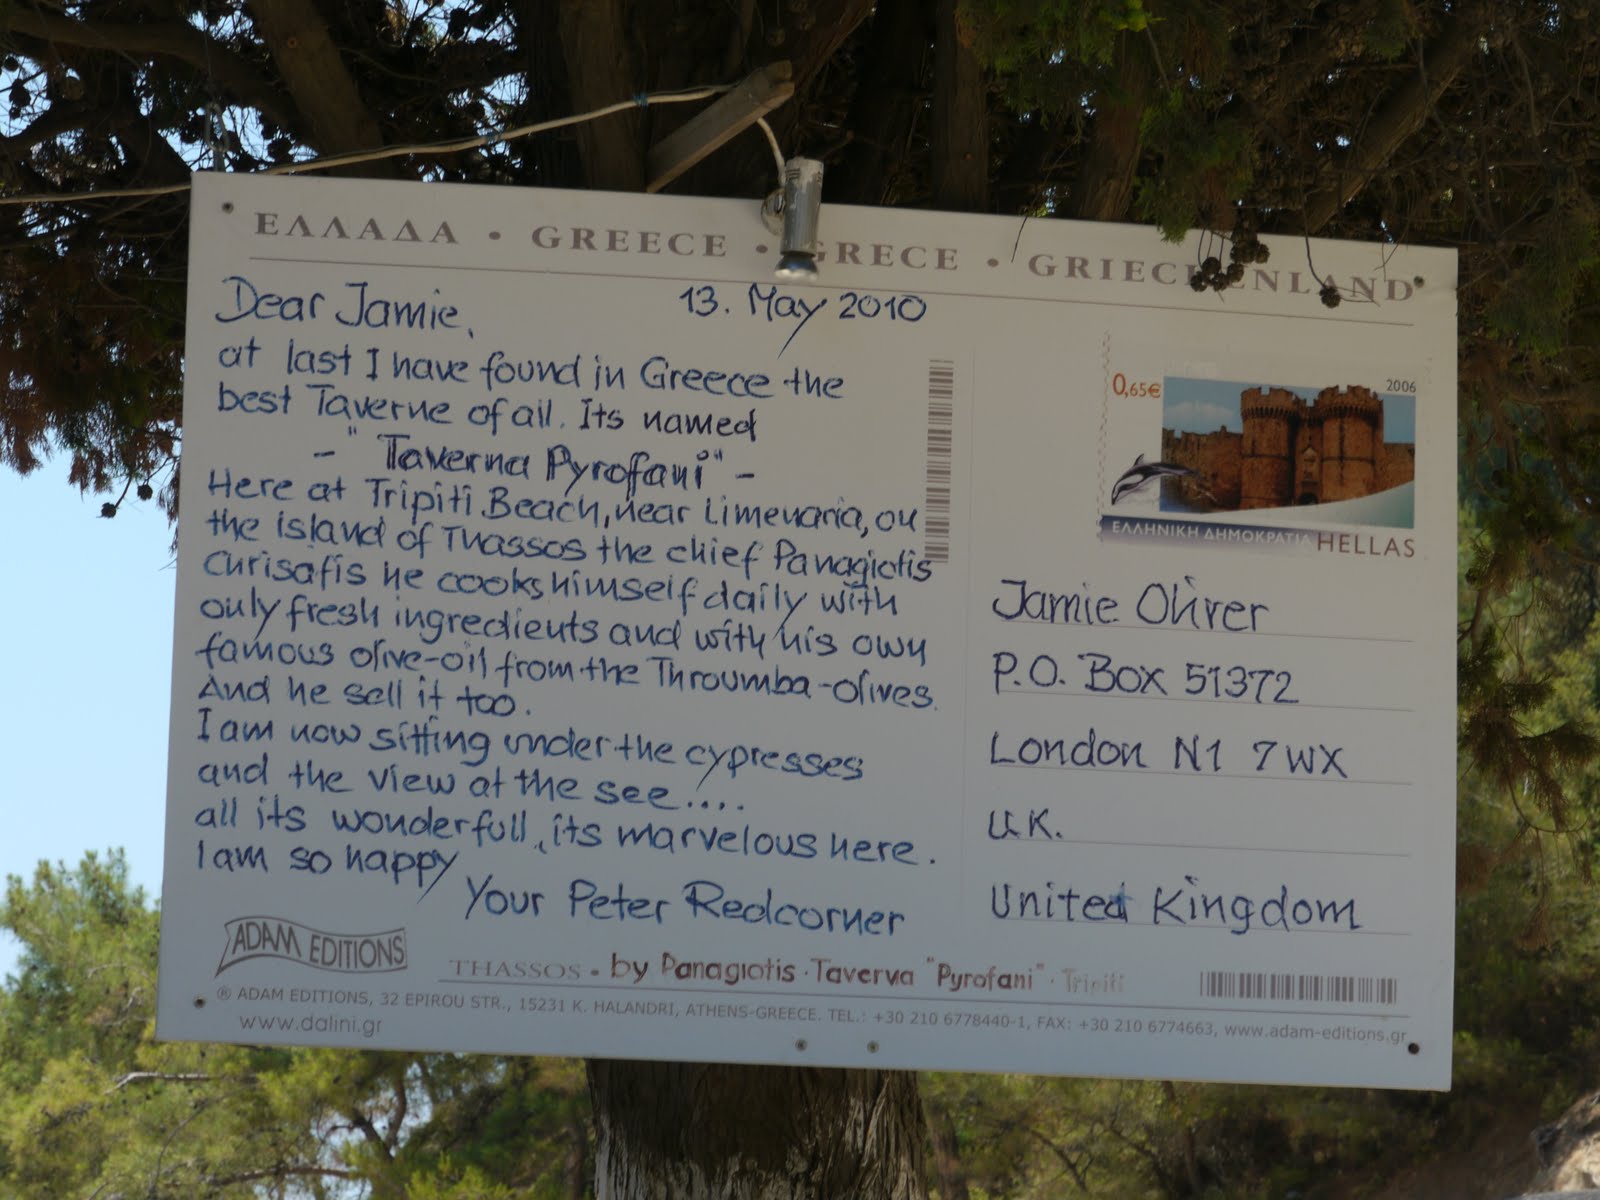 ΕΛΛΑΔΑ • GREECE • GRECE • GRIECHENLAND
Dear Jamie, 13. May 2010
at last I have found in Greece the
best Taverne of all. Its named
- "Taverna Pyrofani" -
Here at Tripiti Beach, near Limenaria, on
the island of Thassos the chief Panagiotis
Chrisafis he cooks himself daily with
only fresh ingredients and with his own
famous olive-oil from the Throumba-olives.
And he sell it too.
I am now sitting under the cypresses
and the view at the see....
all its wonderfull, its marvelous here.
I am so happy
Your Peter Redcorner
0,65€ 2006
ΕΛΛΗΝΙΚΗ ΔΗΜΟΚΡΑΤΙΑ HELLAS
Jamie Oliver
P.O. Box 51372
London N1 7WX
U.K.
United Kingdom
ADAM EDITIONS
THASSOS • by Panagiotis · Taverva "Pyrofani" · Tripiti
® ADAM EDITIONS, 32 EPIROU STR., 15231 K. HALANDRI, ATHENS-GREECE. TEL.: +30 210 6778440-1, FAX: +30 210 6774663, www.adam-editions.gr
www.dalini.gr